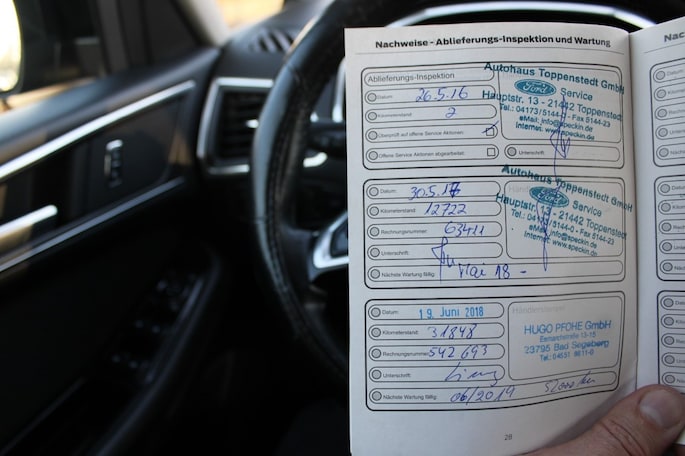 Nachweise - Ablieferungs-Inspektion und Wartung
Ablieferungs-Inspektion
Datum: 26.5.16
Kilometerstand: 2
Überprüft auf offene Service Aktionen:
Offene Service Aktionen abgearbeitet:
Unterschrift:
Autohaus Toppenstedt GmbH
Ford Service
Hauptstr. 13 - 21442 Toppenstedt
Tel.: 04173/5144-0 - Fax 5144-23
eMail: info@speckin.de
Internet: www.speckin.de
Datum: 30.5.17
Kilometerstand: 12722
Rechnungsnummer: 63411
Unterschrift:
Nächste Wartung fällig: Mai 18 -
Autohaus Toppenstedt GmbH
Ford Service
Hauptstr. 13 - 21442 Toppenstedt
Tel.: 04173/5144-0 - Fax 5144-23
eMail: info@speckin.de
Internet: www.speckin.de
Datum: 19. Juni 2018
Kilometerstand: 31848
Rechnungsnummer: 542 693
Unterschrift:
Nächste Wartung fällig: 06/2019
HUGO PFOHE GmbH
Eemarchstraße 13-15
23795 Bad Segeberg
28
Nac